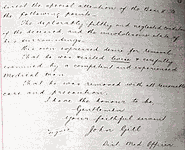 direct the special attention of the Board to
the following facts
The deplorably filthy and neglected condition
of the deceased and the unwholesome state of
his surroundings
His own expressed desire for removal
That he was visited twice & carefully
examined by a competent and experienced
Medical man
That he was removed with all reasonable
care and precaution
I have the honour to be
Gentlemen
Your faithful servant
John Gill
Dist Med Officer